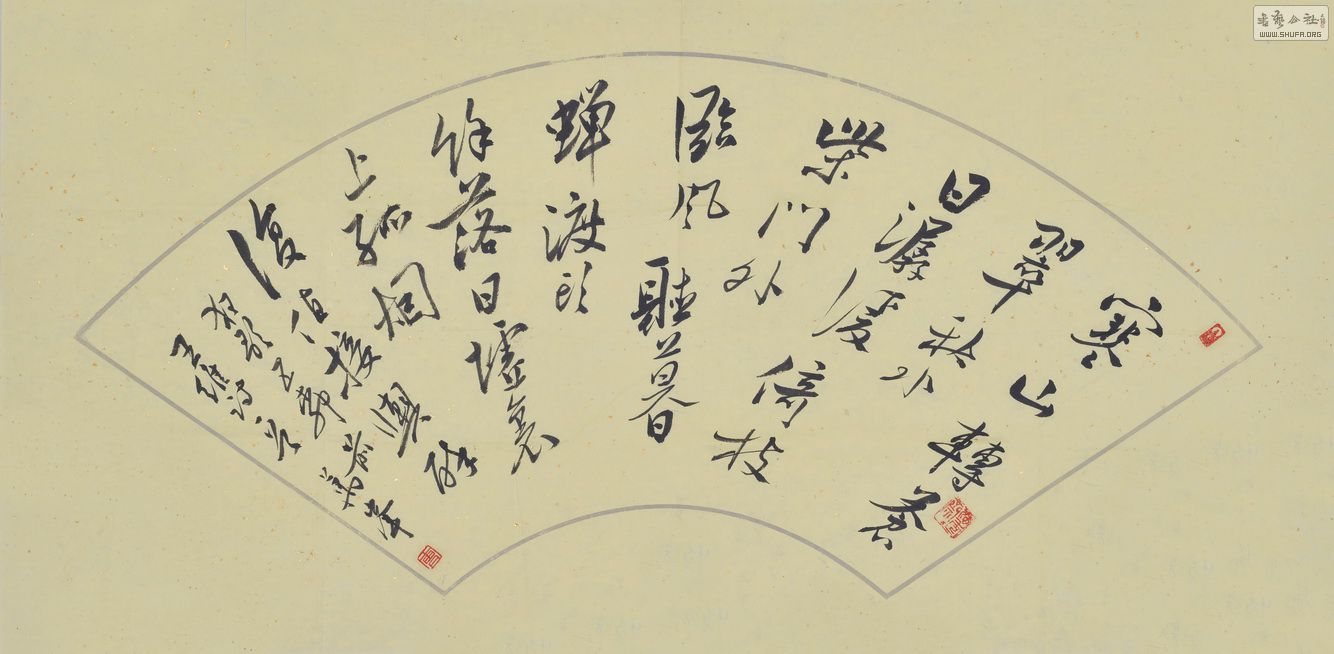 寒山轉蒼
翠秋水
日潺湲倚杖
柴門外
臨風聽暮
蟬渡頭
餘落日墟裏
上孤烟
復值接輿醉
狂歌五柳前
王維詩
书艺公社
WWW.SHUFA.ORG